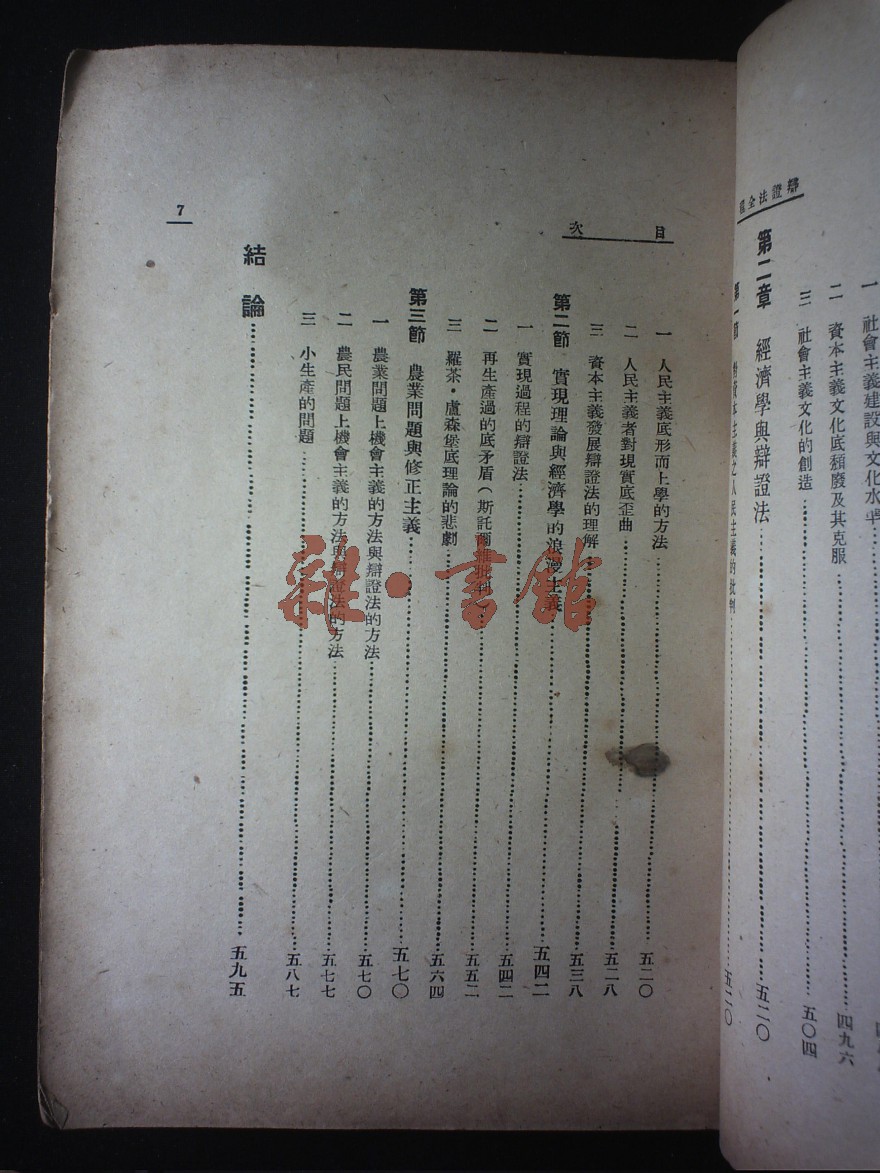 辯證法全程
一 社會主義建設與文化水平
二 資本主義文化底頹廢及其克服……四九六
三 社會主義文化的創造……五〇四
第二章 經濟學與辯證法……五二〇
第一節 對資本主義之人民主義的批判……五二〇
目次
一 人民主義底形而上學的方法……五二〇
二 人民主義者對現實底歪曲……五二八
三 資本主義發展辯證法的理解……五三八
第二節 實現理論與經濟學的浪漫主義……五四二
一 實現過程的辯證法……五四二
二 再生產過的底矛盾(斯託爾維批判)……五五二
三 羅茶·盧森堡底理論的悲劇……五六四
第三節 農業問題與修正主義……五七〇
一 農業問題上機會主義的方法與辯證法的方法……五七〇
二 農民問題上機會主義的方法與辯證法的方法……五七七
三 小生產的問題……五八七
結論……五九五
7
雜·書館